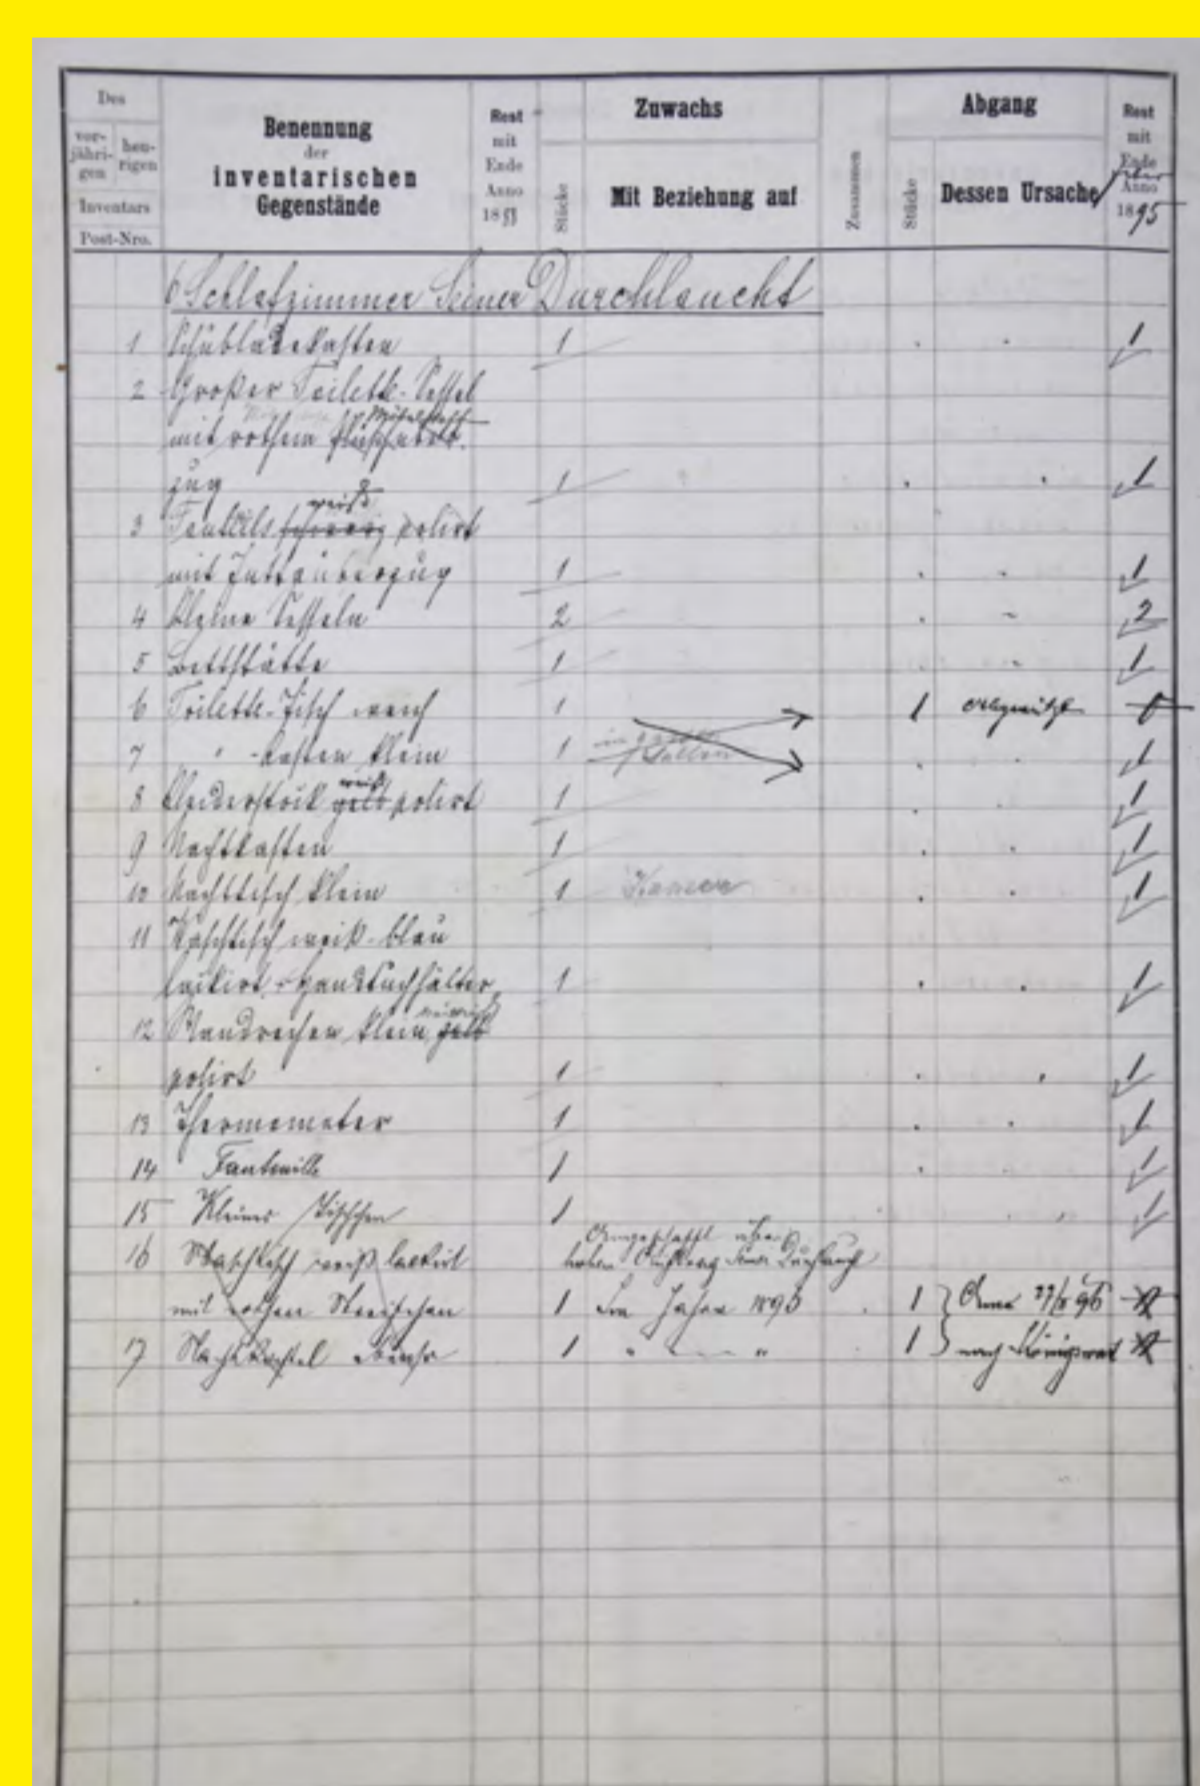 Des
vorjährigen heurigen
Inventars
Post-Nro.
Benennung
der
inventarischen
Gegenstände
Rest
mit
Ende
Anno
18
Zuwachs
Stücke
Mit Beziehung auf
Zusammen
Abgang
Stücke
Dessen Ursache
Rest
mit
Ende
Anno
1895
6 Schlafzimmer Seiner Durchlaucht
1 Schubladekasten 1 1
2 Großer Toilette-Sessel
mit rothem Möbelstoff
zug 1 1
3 Fauteils schwarz weiß polirt
mit Jutteüberzug 1 1
4 kleine Sesseln 2 2
5 Bettstätte 1 1
6 Toilette-Tisch weich 1 1 abgenützt
7 " -kasten klein 1 1
8 Kleiderstock gelb weiß polirt 1 1
9 Nachtkasten 1 1
10 Nachttisch klein 1 1
11 Waschtisch weiß-blau
lackirt - Handtuchhälter 1 1
12 Wandrechen klein gelb
polirt 1 1
13 Thermometer 1 1
14 Fauteuille 1 1
15 Kleines Tischchen 1 1
16 Waschtisch weiß lackirt Angeschafft über
hohen Auftrag Seiner Durchlaucht
mit rothen Streifchen 1 Im Jahre 1895 1
17 1 " " 1 nach Königswart